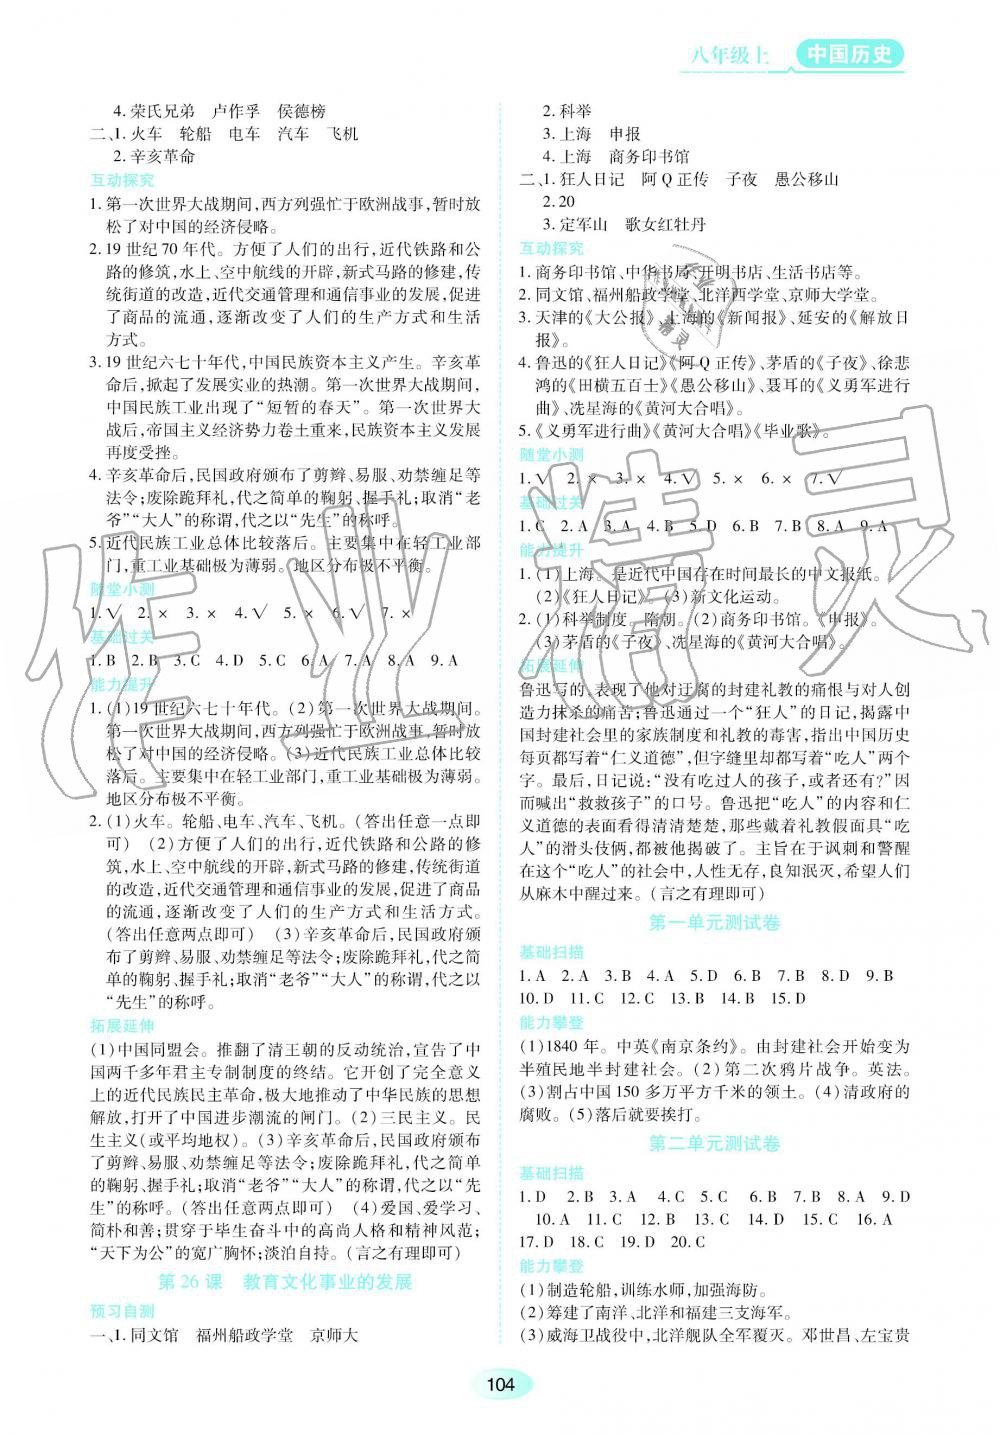 八年级上 中国历史
4. 荣氏兄弟 卢作孚 侯德榜
二、1. 火车 轮船 电车 汽车 飞机
2. 辛亥革命
互动探究
1. 第一次世界大战期间,西方列强忙于欧洲战事,暂时放
松了对中国的经济侵略。
2. 19 世纪 70 年代。方便了人们的出行,近代铁路和公
路的修筑,水上、空中航线的开辟,新式马路的修建,传
统街道的改造,近代交通管理和通信事业的发展,促进
了商品的流通,逐渐改变了人们的生产方式和生活
方式。
3. 19 世纪六七十年代,中国民族资本主义产生。辛亥革
命后,掀起了发展实业的热潮。第一次世界大战期间,
中国民族工业出现了“短暂的春天”。第一次世界大
战后,帝国主义经济势力卷土重来,民族资本主义发展
再度受挫。
4. 辛亥革命后,民国政府颁布了剪辫、易服、劝禁缠足等
法令;废除跪拜礼,代之简单的鞠躬、握手礼;取消“老
爷”“大人”的称谓,代之以“先生”的称呼。
5. 近代民族工业总体比较落后。主要集中在轻工业部
门,重工业基础极为薄弱。地区分布极不平衡。
随堂小测
1. √ 2. × 3. × 4. √ 5. × 6. √ 7. ×
基础过关
1. B 2. B 3. C 4. D 5. C 6. A 7. A 8. A 9. A
能力提升
1. (1)19 世纪六七十年代。(2)第一次世界大战期间。
第一次世界大战期间,西方列强忙于欧洲战事,暂时放
松了对中国的经济侵略。(3)近代民族工业总体比较
落后。主要集中在轻工业部门,重工业基础极为薄弱。
地区分布极不平衡。
2. (1)火车。轮船、电车、汽车、飞机。(答出任意一点即
可) (2)方便了人们的出行,近代铁路和公路的修
筑,水上、空中航线的开辟,新式马路的修建,传统街道
的改造,近代交通管理和通信事业的发展,促进了商品
的流通,逐渐改变了人们的生产方式和生活方式。
(答出任意两点即可) (3)辛亥革命后,民国政府颁布
了剪辫、易服、劝禁缠足等法令;废除跪拜礼,代之简单
的鞠躬、握手礼;取消“老爷”“大人”的称谓,代之以
“先生”的称呼。
拓展延伸
(1)中国同盟会。推翻了清王朝的反动统治,宣告了中
国两千多年君主专制制度的终结。它开创了完全意义
上的近代民族民主革命,极大地推动了中华民族的思想
解放,打开了中国进步潮流的闸门。(2)三民主义。民
生主义(或平均地权)。(3)辛亥革命后,民国政府颁布
了剪辫、易服、劝禁缠足等法令;废除跪拜礼,代之简单
的鞠躬、握手礼;取消“老爷”“大人”的称谓,代之以“先
生”的称呼。(答出任意两点即可) (4)爱国、爱学习、
简朴和善;贯穿于毕生奋斗中的高尚人格和精神风范;
“天下为公”的宽广胸怀;淡泊自持。(言之有理即可)
第 26 课 教育文化事业的发展
预习自测
一、1. 同文馆 福州船政学堂 京师大
2. 科举
3. 上海 申报
4. 上海 商务印书馆
二、1. 狂人日记 阿 Q 正传 子夜 愚公移山
2. 20
3. 定军山 歌女红牡丹
互动探究
1. 商务印书馆、中华书局、开明书店、生活书店等。
2. 同文馆、福州船政学堂、北洋西学堂、京师大学堂。
3. 天津的《大公报》、上海的《新闻报》、延安的《解放日
报》。
4. 鲁迅的《狂人日记》《阿 Q 正传》、茅盾的《子夜》、徐悲
鸿的《田横五百士》《愚公移山》、聂耳的《义勇军进行
曲》、冼星海的《黄河大合唱》。
5. 《义勇军进行曲》《黄河大合唱》《毕业歌》。
随堂小测
1. √ 2. × 3. × 4. √ 5. × 6. × 7. √
基础过关
1. C 2. A 3. A 4. B 5. D 6. B 7. B 8. A 9. A
能力提升
1. (1)上海。是近代中国存在时间最长的中文报纸。
(2)《狂人日记》。(3)新文化运动。
2. (1)科举制度。隋朝。(2)商务印书馆。《申报》。
(3)茅盾的《子夜》、冼星海的《黄河大合唱》。
拓展延伸
鲁迅写的,表现了他对迂腐的封建礼教的痛恨与对人创
造力抹杀的痛苦;鲁迅通过一个“狂人”的日记,揭露中
国封建社会里的家族制度和礼教的毒害,指出中国历史
每页都写着“仁义道德”,但字缝里却都写着“吃人”两个
字。最后,日记说:“没有吃过人的孩子,或者还有?”因
而喊出“救救孩子”的口号。鲁迅把“吃人”的内容和仁
义道德的表面看得清清楚楚,那些戴着礼教假面具“吃
人”的滑头伎俩,都被他揭穿了。主旨在于讽刺和警醒
在这个“吃人”的社会中,人性无存,良知泯灭,希望人们
从麻木中醒过来。(言之有理即可)
第一单元测试卷
基础扫描
1. A 2. A 3. B 4. B 5. A 6. D 7. B 8. D 9. B
10. D 11. C 12. D 13. B 14. B 15. D
能力攀登
(1)1840 年。中英《南京条约》。由封建社会开始变为
半殖民地半封建社会。(2)第二次鸦片战争。英法。
(3)割占中国 150 多万平方千米的领土。(4)清政府的
腐败。(5)落后就要挨打。
第二单元测试卷
基础扫描
1. D 2. B 3. A 4. C 5. C 6. A 7. C 8. B 9. D
10. A 11. C 12. D 13. B 14. A 15. C 16. A
17. D 18. C 19. D 20. C
能力攀登
(1)制造轮船,训练水师,加强海防。
(2)筹建了南洋、北洋和福建三支海军。
(3)威海卫战役中,北洋舰队全军覆灭。邓世昌、左宝贵
104
作业精灵